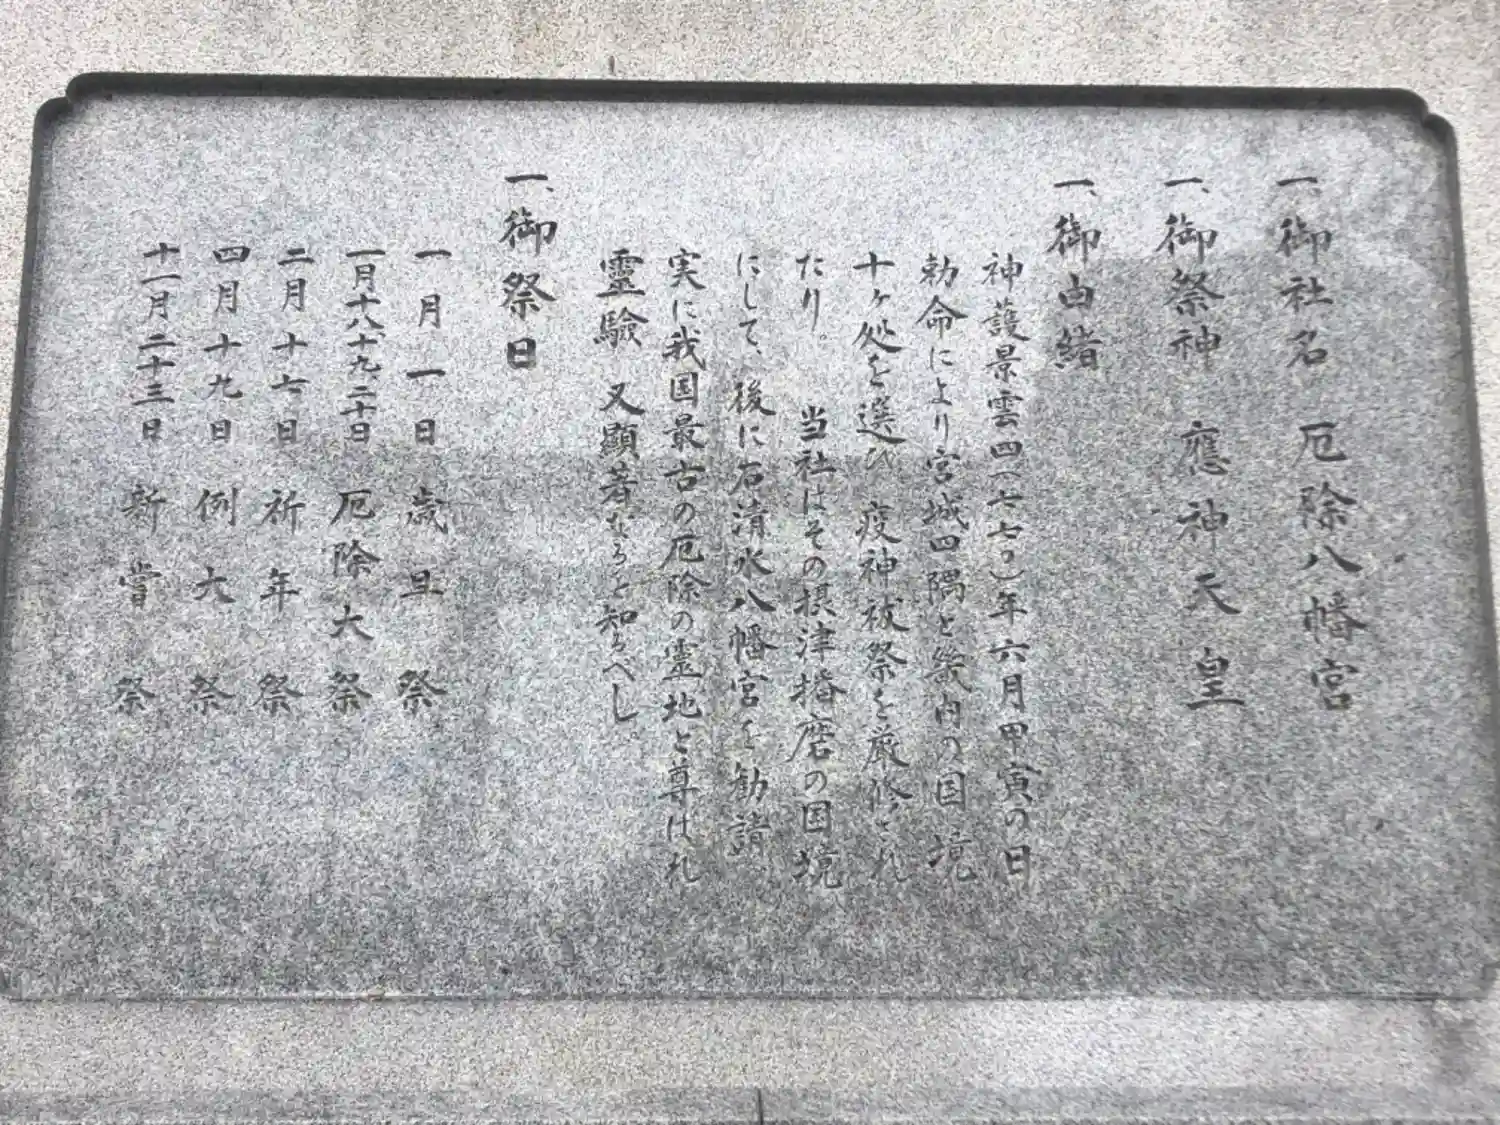 一、御社名　厄除八幡宮
一、御祭神　應神天皇
一、御由緒
神護景雲四（七七〇）年六月甲寅の日
勅命により宮城四隅と畿内の国境
十ヶ処を選び疫神祓祭を厳修され
たり。　当社はその摂津播磨の国境
にして、後に石清水八幡宮を勧請
実に我国最古の厄除の霊地と尊ばれ
靈驗　又顯著なると知るべし。
一、御祭日
一月一日　歳旦祭
一月十八十九二十日　厄除大祭
二月十七日　祈年祭
四月十九日　例大祭
十一月二十三日　新嘗祭